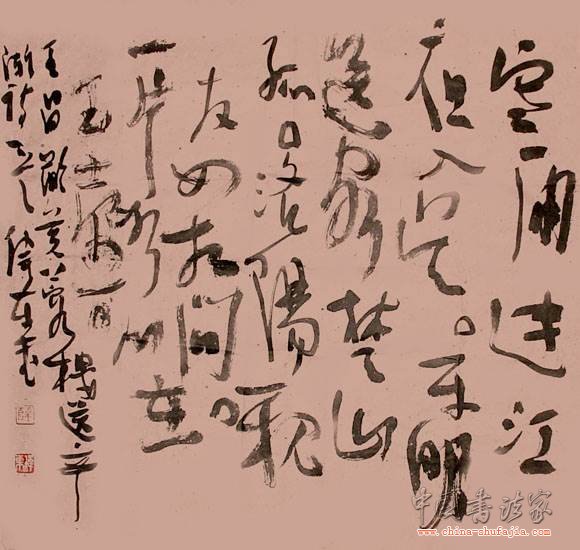 寒雨連江
夜入吴平明
送客楚山
孤洛陽親
友如相問
一片冰心在
玉壺
王昌齡芙蓉樓送辛
漸詩
中国书法家
www.china-shufajia.com